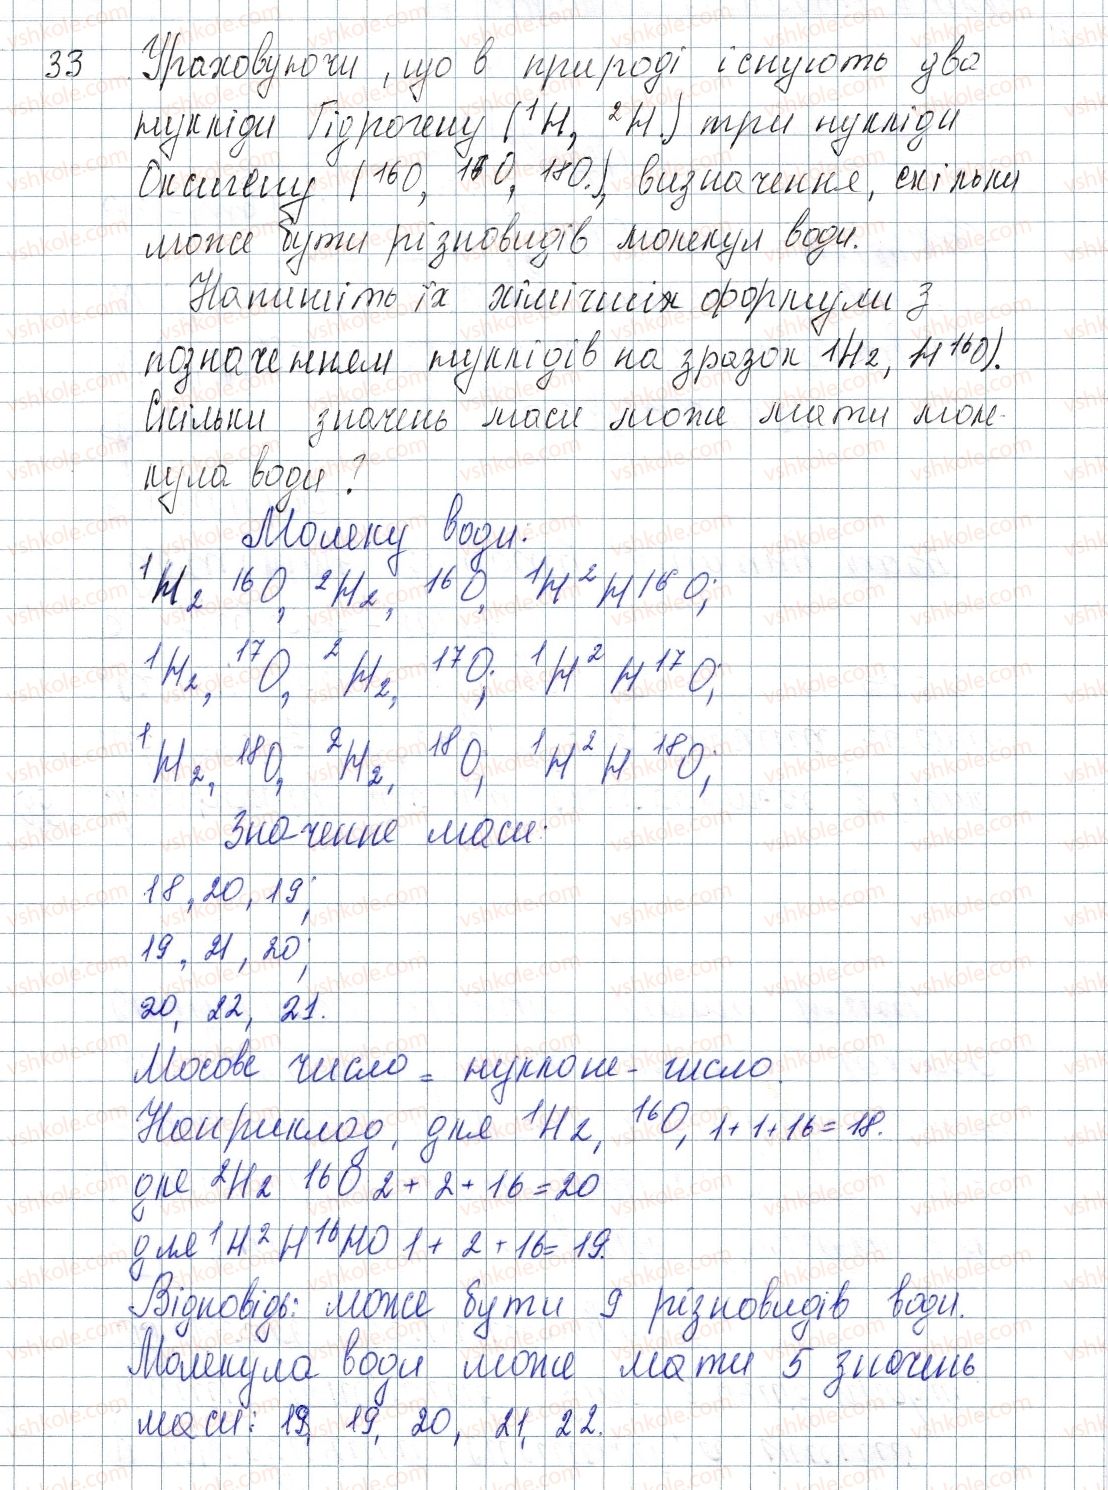 33 Ураховуючи, що в природі існують два
нукліди Гідрогену (¹H, ²H.) три нукліди
Оксигену (16O, 17O, 18O.), визначення, скільки
може бути різновидів молекул води.
Напишіть їх хімічних формули з
позначенням нуклідів на зразок 1H2, H16O).
Скільки значень маси може мати моле-
кула води?
Молеку води:
¹H₂ ¹⁶O, ²H₂, ¹⁶O, ¹H²H¹⁶O;
¹H₂, ¹⁷O, ²H₂, ¹⁷O; ¹H²H¹⁷O;
¹H₂, ¹⁸O, ²H₂, ¹⁸O; ¹H²H¹⁸O;
Значення маси:
18, 20, 19;
19, 21, 20;
20, 22, 21.
Масове число = нуклоне- число.
Наприклад, для ¹H₂, ¹⁶O, 1+1+16=18.
для ²H₂ 16O 2+2+16=20
для ¹H²H¹⁶HO 1+2+16=19.
Відповідь: може бути 9 різновидів води.
Молекула води може мати 5 значень
маси: 19, 19, 20, 21, 22.